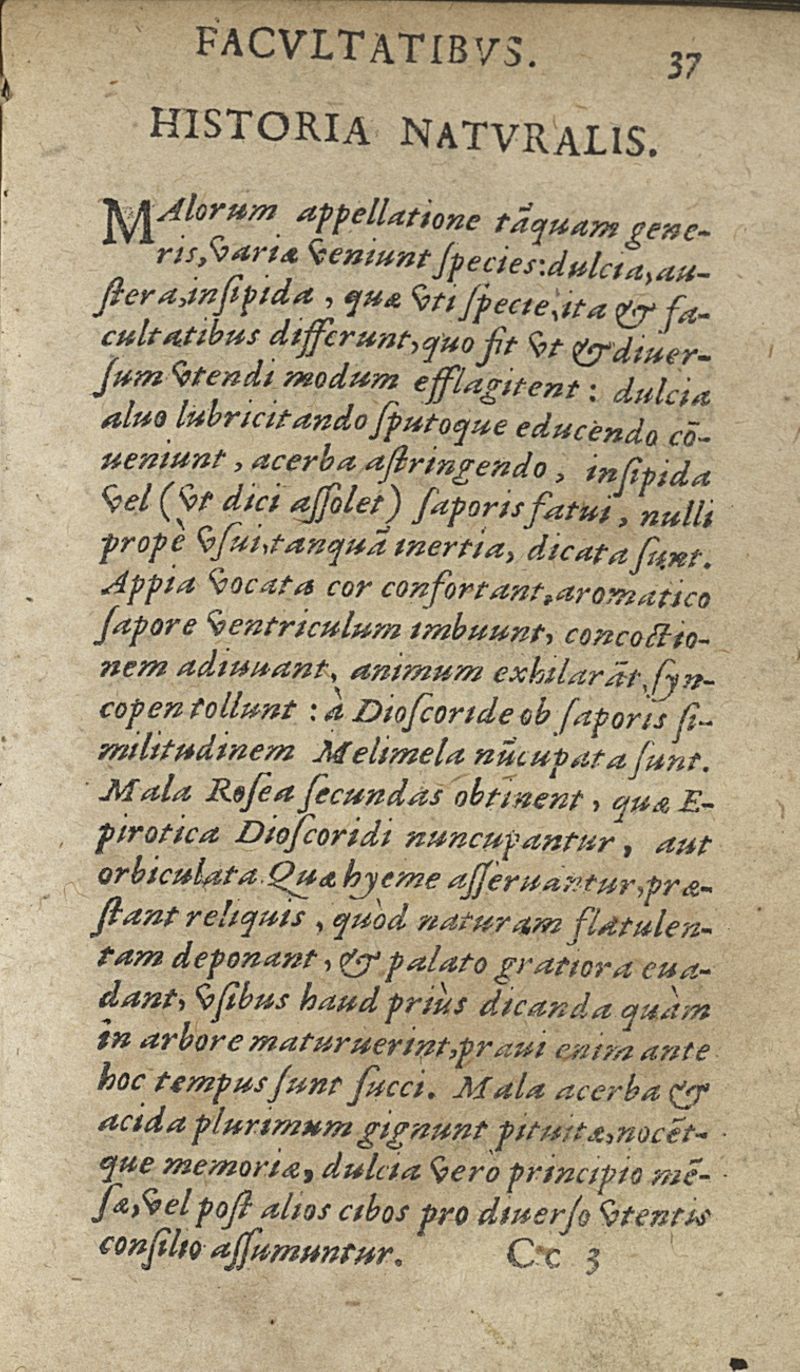 FACVLTATIBVS. 37
HISTORIA NATVRALIS.
MAlorum appellatione tāquam gene-
ris, variæ veniunt ſpecies: dulcia, au-
ſtera, inſipida, quæ vti ſpecie, ita & fa-
cultatibus differunt, quo fit vt & diuer-
ſum vtendi modum efflagitent: dulcia
aluo lubricitando ſputoque educendo cō-
ueniunt, acerba aſtringendo, inſipida
vel (vt dici aſſolet) ſaporis fatui, nulli
propè vſui, tanquā inertia, dicata ſunt.
Appia vocata cor confortant, aromatico
ſapore ventriculum imbuunt, concoctio-
nem adiuuant, animum exhilarāt, ſyn-
copen tollunt: à Dioſcoride ob ſaporis ſi-
militudinem Melimela nūcupata ſunt.
Mala Roſea ſecundas obtinent, quæ E-
pirotica Dioſcoridi nuncupantur, aut
orbiculata. Quæ hyeme aſſeruantur, præ-
ſtant reliquis, quòd naturam flatulen-
tam deponant, & palato gratiora eua-
dant, vſibus haud priùs dicanda quàm
in arbore maturuerint, praui enim ante
hoc tempus ſunt ſucci. Mala acerba &
acida plurimum gignunt pituitæ, nocēt-
que memoriæ, dulcia verò principio mē-
ſæ, vel poſt alios cibos pro diuerſo vtentis
conſilio aſſumuntur. Cc 3